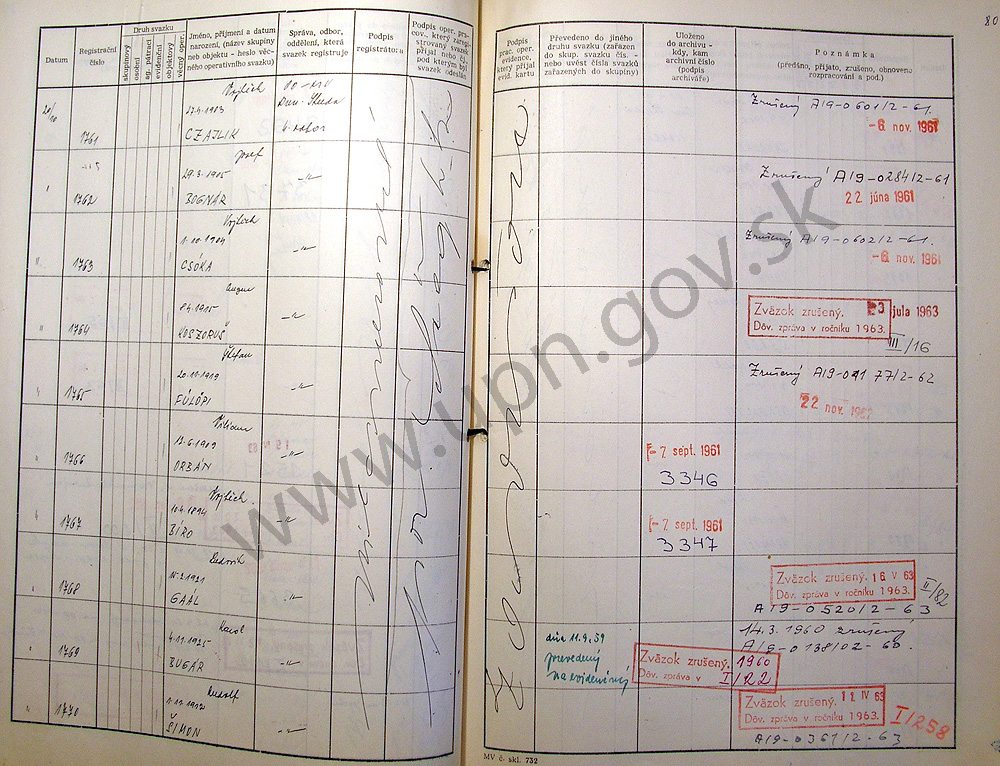 80
Datum
Registrační
číslo
Druh svazku
skupinový
osobní
sp. pátrací
evidenční
objektový
věcný oper.
Jméno, příjmení a datum
narození, (název skupiny
neb objektu - heslo věc-
ného operativního svazku)
Správa, odbor,
oddělení, která
svazek registruje
Podpis
registrátora
Podpis oper. pra-
cov., který zareg-
istrovaný svazek
přijal nebo čj.,
pod kterým byl
svazek odeslán
Podpis
prac. oper.
evidence,
který přijal
evid. kartu
Převedeno do jiného
druhu svazku (zařazen
do skup. svazku čís. -
nebo uvést čísla svazků
zařazených do skupiny)
Uloženo
do archivu -
kdy, kam
archivní číslo
(podpis
archiváře)
Poznámka
(předáno, přijato, zrušeno, obnoveno
rozpracování a pod.)
1761
Vojtech
27.4.1903
CZAJLIK
Dun. Streda
4. odbor
Zrušený A19-0601/2-61.
-6. nov. 1961
1762
Jozef
29.3.1905
BOGNÁR
-"-
Zrušený A19-0284/2-61
22 júna 1961
1763
Vojtech
1.10.1904
CSÓKA
-"-
Zrušený A19-0602/2-61.
-6. nov. 1961
1764
8.4.1915
KOSZORUŠ
-"-
Zväzok zrušený.
Dôv. zpráva v ročníku 1963.
júla 1963
III/16
1765
Štefan
20.11.1919
FÜLÖPI
-"-
Zrušený A19-04177/2-62
22 nov. 1962
1766
Viliam
13.6.1909
ORBÁN
-"-
-7. sept. 1961
3346
1767
Vojtech
10.4.1894
BÍRO
-"-
-7. sept. 1961
3347
1768
Ľudovít
GAÁL
-"-
Zväzok zrušený. 16 V 63
Dôv. zpráva v ročníku 1963.
II/82
A19-0520/2-63
1769
Karol
4.11.1925
BUGÁR
-"-
dňa 11.9.59
prevedený
na evidenčný
Zväzok zrušený. 1960
Dôv. zpráva v I/22
14.3.1960 zrušený
A19-0138/02-60.
1770
Rudolf
1.11.1912
ŠIMON
-"-
Zväzok zrušený. IV 63
Dôv. zpráva v ročníku 1963.
I/258
A19-0361/2-63
MV č. skl. 732
www.upn.gov.sk